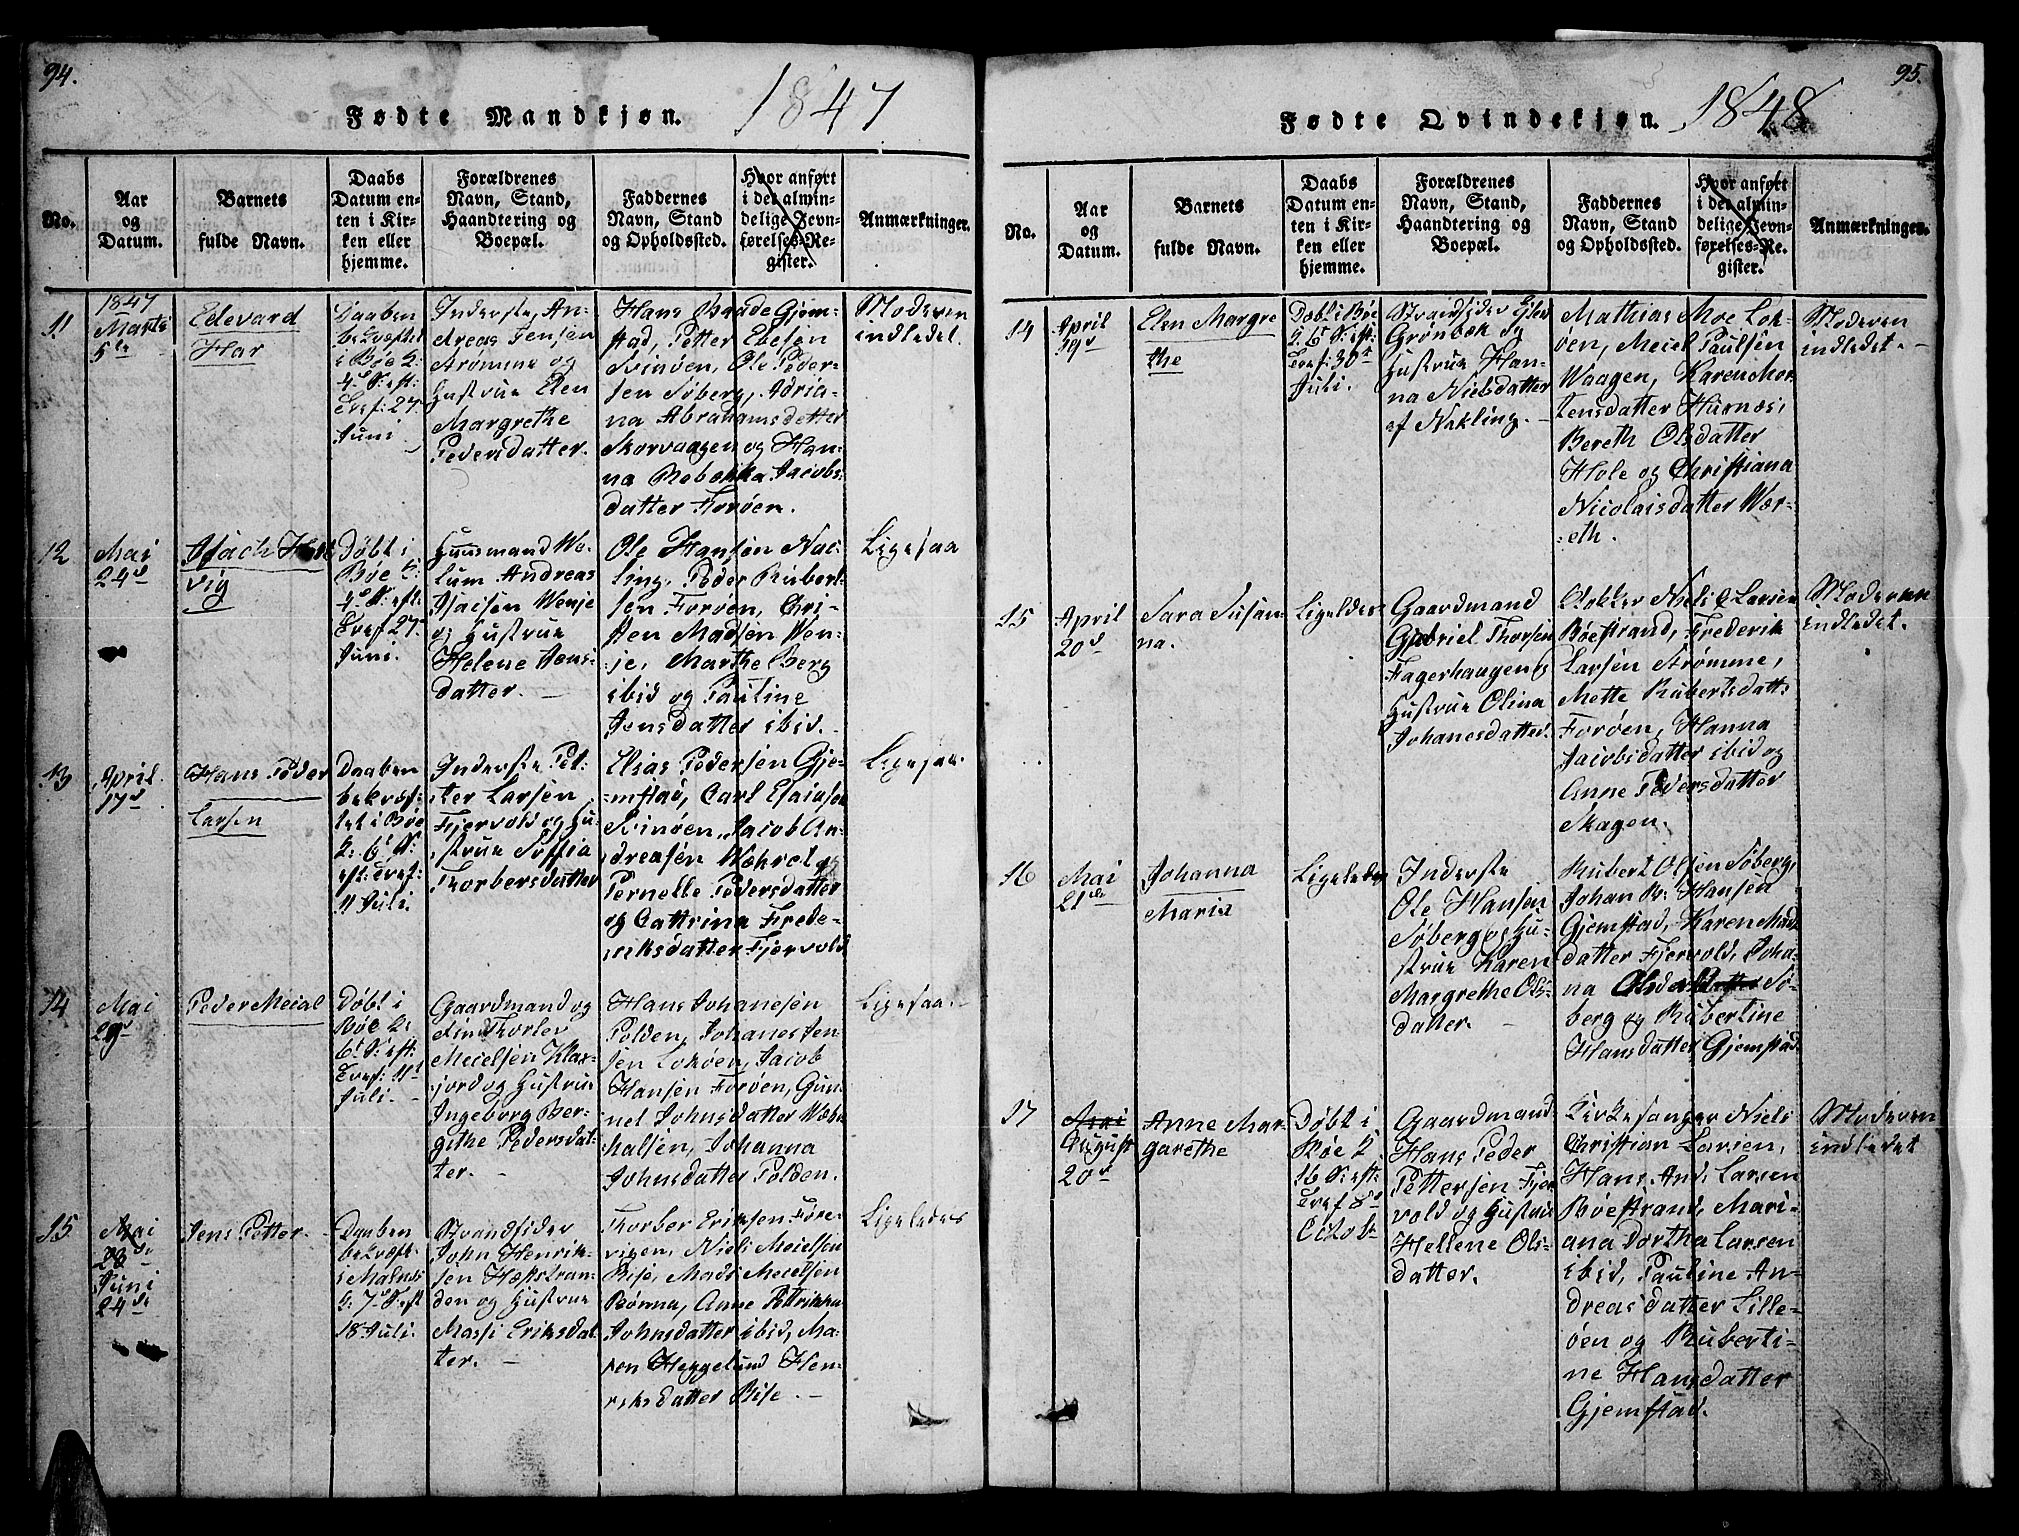 94.
Fødte Mandkjøn. 1847
No.
Aar
og
Datum.
Barnets
fulde Navn.
Daabs
Datum en-
ten i Kir-
ken eller
hjemme.
Forældrenes
Navn, Stand,
Haandtering og
Boepæl.
Faddernes
Navn, Stand
og Opholdssted.
Hvor anført
i det almin-
delige Jevn-
førelses-Re-
gister.
Anmærkninger.
11
1847
Marts
5te
Edevard
Har
Daaben
bekræftet
i Bøe S:
4d S: eft:
Tref: 27
Juni
Inderste, An-
dreas Jensen
Strømme og
Hustrue Elen
Margrethe
Pedersdatter.
Hans Baade Gjem-
stad, Petter Ebesen
Svinøen, Ole Peder-
sen Søberg, Adria-
na Abrahamsdatter
Skorvaagen og Han-
na Rebekka Jacobs-
datter Forøen.
Moderen
indledet.
12
Mai
24d
Isach Hart
vig
Døbt i
Bøe S:
4d S: eft:
Tref 27
Juni.
Huusmand We-
lum Andreas
Isaksen Wenje
og Hustrue
Helene Jens-
datter. —
Ole Hansen Nac-
ling, Peder Rubert-
sen Forøen, Chri-
sten Madsen Ven-
je, Marthe Berg
ibid og Pauline
Jensdatter ibid.
Ligesaa
13
April
17d
Hans Peder
Larsen
Daaben
bekræf-
tet i Bøe
S: 6t S:
eft: Tref:
11 Juli.
Inderste Pet-
ter Larsen
Fjervold og Hu-
strue Soffia
Thorbersdatter
Elias Pedersen Gje-
mstad, Carl Esaiasen
Svinøen, Jacob An-
dreasen Wæhret og
Pernelle Pedersdatter
og Cattrina Frede-
riksdatter Fjervold
Ligesaa.
14
Mai
29d
Peder Meial
Døbt i
Bøe S:
6t S: eft:
Tref: 11t
Juli. —
Gaardmand og
Thorlev
Meielsen Klax-
jord og Hustrue
Ingeborg Ber-
githe Pedersdat-
ter. —
Hans Johanesen
Polden, Johanes Jen-
sen Lokøen, Jacob
Hansen Forøen, Gun-
nel Johnsdatter Wæh-
halsen, Johanna
Johnsdatter Polden.
Ligesaa. —
15
Mai
28de
Juni
24de
Jens Petter. —
Daaben
bekræft:
i Malnes
S: 7d S: eft
18 Juli.
Strandsider
John Henrik-
sen Hækstran-
den og Hustrue
Massi Eriksdat
ter. —
Thorber Eriksen Føre
vigen, Niels Meielsen
Rise, Mads Meielsen
Rønna, Anne Petrikka
Johnsdatter ibid, Ma-
ren Heggelund Hen-
riksdatter Rise. —
Ligeledes
95.
Fødte Qvindekjøn. 1848
No.
Aar
og
Datum.
Barnets
fulde Navn.
Daabs
Datum en-
ten i Kir-
ken eller
hjemme.
Forældrenes
Navn, Stand,
Haandtering og
Boepæl.
Faddernes
Navn, Stand
og Opholdssted.
Hvor anført
i det almin-
delige Jevn-
førelses-Re-
gister.
Anmærkninger.
14
April
19d
Elen Margre
the
Døbt i Bøe
S. 6t S: eft:
Tref: 30t
Juli.
Strandsider
Grønbæk og
Hustrue Han-
na Nielsdatter
af Nykling. —
Mathias Moe Lok-
øen, Meiel Paulsen
Waagen, Karen Mor-
tensdatter Hurnæs,
Bereth Olsdatter
Hole og Christiana
Nicolaisdatter Wær-
eth.
Moderen
indledet. —
15
April
20d
Sara Susan-
na.
Ligeledes
Gaardmand
Gabriel Thorsen
Fagerhaugen og
Hustrue Olina
Johanesdatter.
Klokker Niels C Larsen
Bøestrand, Frederik
Larsen Strømme,
Mette Rubertsdatt:
Forøen, Hanna
Jacobsdatter ibid og
Anne Pedersdatter
Skagen.
Moderen
indledet.
16
Mai
21de
Johanna
Maria
Ligeledes
Inderste
Ole Hansen
Søberg og Hu-
strue Karen
Margrethe Ols-
datter. —
Rubert Olsen Søberg,
Johan B: Hansen
Gjemstad, Karen Mads
datter Fjervold, Joha-
na Olsdatter Sø-
berg og Rubertine
Hansdatter Gjemstad.
17
Mai
August
20d
Anne Mar-
garethe
Døbt i
Bøe S
16 S: eft:
Tref 8d
Octob
Gaardmand
Hans Peder
Pettersen Fjer
vold og Hustrue
Hellene Ols-
datter.
Kirkesanger Niels
Christian Larsen,
Hans And: Larsen
Bøestrand, Mari-
ana Dortha Larsen
ibid, Pauline An-
dreasdatter Lille-
øen og Ruberti-
ne Hansdatter
Gjemstad.
Moderen
indledet